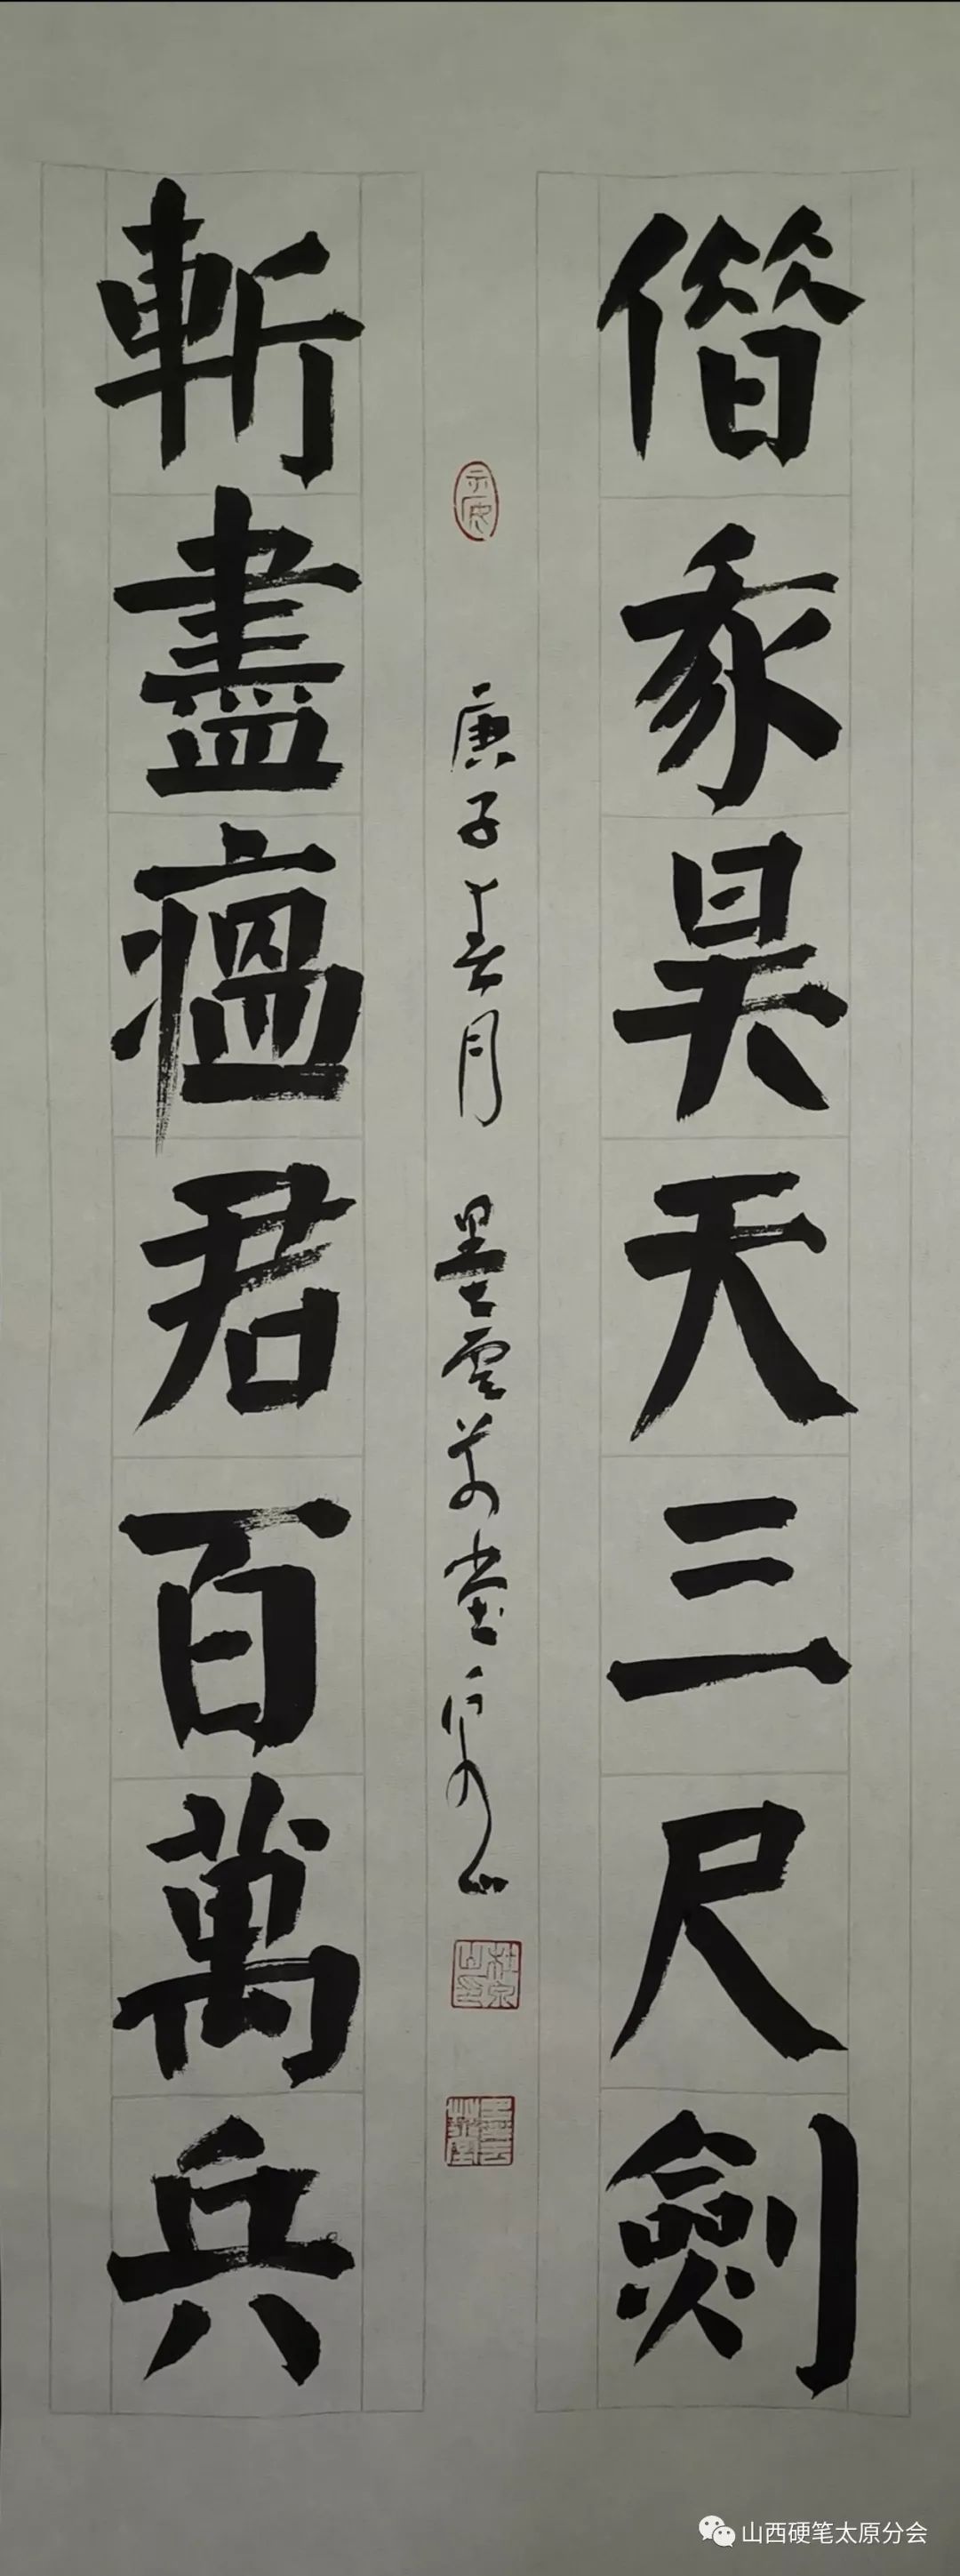 借我昊天三尺劍
斬盡瘟君百萬兵
庚子春月 墨雲草堂
山西硬笔太原分会